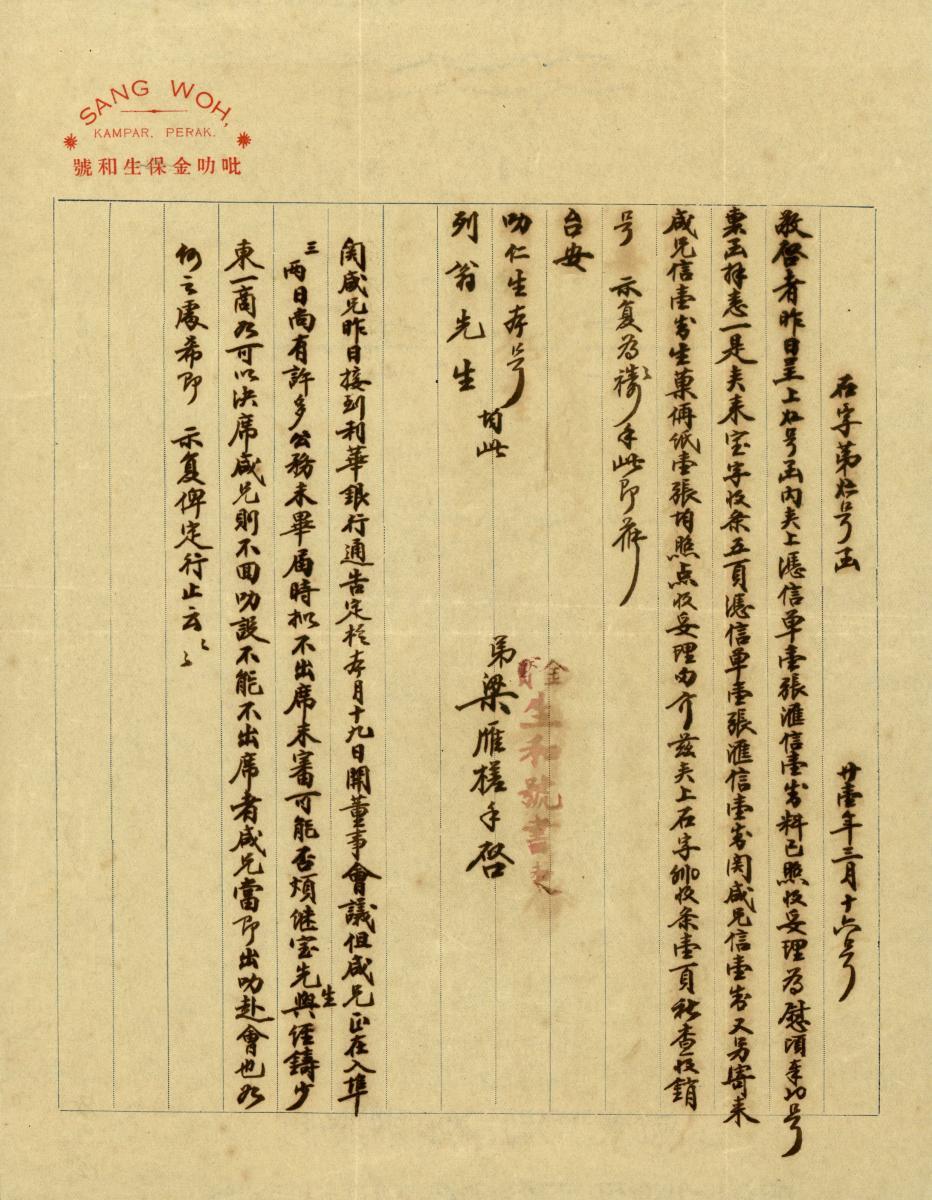 SANG WOH,
KAMPAR, PERAK.
號和生保金叻吡
石字第 号函 廿壹年三月十六号
敬啓者昨日呈上 号函內夾上憑信单壹張滙信壹封料已照收妥理為慰頃奉 号
票函祥悉一是夾來宝字收条五頁憑信单壹張滙信壹封閱咸兄信壹封又另寄來
咸兄信壹封生菓俩纸壹張均照点收妥理勿介茲夾上石字 收条壹頁祈查收銷
号 示复為禱〻手此即頌
台安
叻仁生本号
列翁先生 均此
弟梁雁槎手啓
金寶生和號書柬
閱咸兄昨日接到利華銀行通告定於本月十九日開董事會議但咸兄正在入埠
三兩日尚有許多公務未畢屆時擬不出席未審可能否煩继宝先生與经鑄少
東一商如可以決席咸兄則不回叻設不能不出席者咸兄當即出叻赴會也如
何之處希即 示复俾定行止云〻